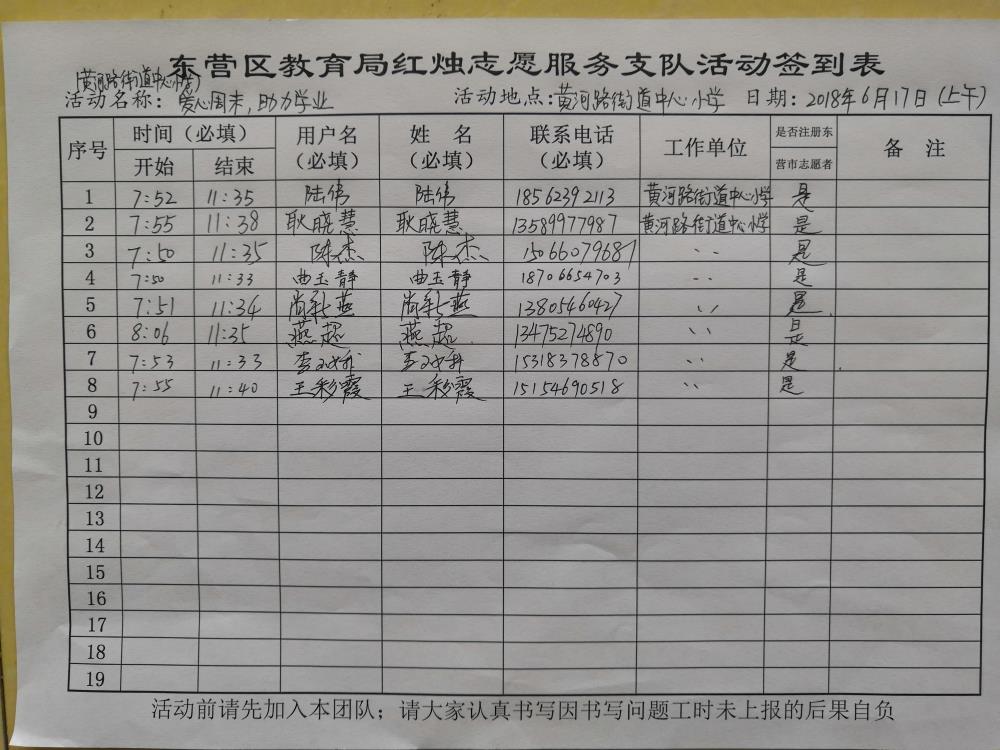 东营区教育局红烛志愿服务支队活动签到表
(黄河路街道中心小学)
活动名称：爱心周末，助力学业 活动地点：黄河路街道中心小学 日期：2018年6月17日(上午)
序号 时间（必填） 用户名（必填） 姓 名（必填） 联系电话（必填） 工作单位 是否注册东营市志愿者 备 注
开始 结束
1 7:52 11:35 陆伟 陆伟 18562392113 黄河路街道中心小学 是
2 7:55 11:38 耿晓慧 耿晓慧 13589977987 黄河路街道中心小学 是
3 7:50 11:35 陈杰 陈杰 15066079687 〃 是
4 7:50 11:33 曲玉静 曲玉静 18706654703 是
5 7:51 11:34 尚新燕 尚新燕 13805460427 〃 是
6 8:06 11:35 燕超 燕超 13475274890 〃 是
7 7:53 11:33 15318378870 〃 是
8 7:55 11:40 王彩霞 王彩霞 15154690518 〃 是
9
10
11
12
13
14
15
16
17
18
19
活动前请先加入本团队；请大家认真书写因书写问题工时未上报的后果自负